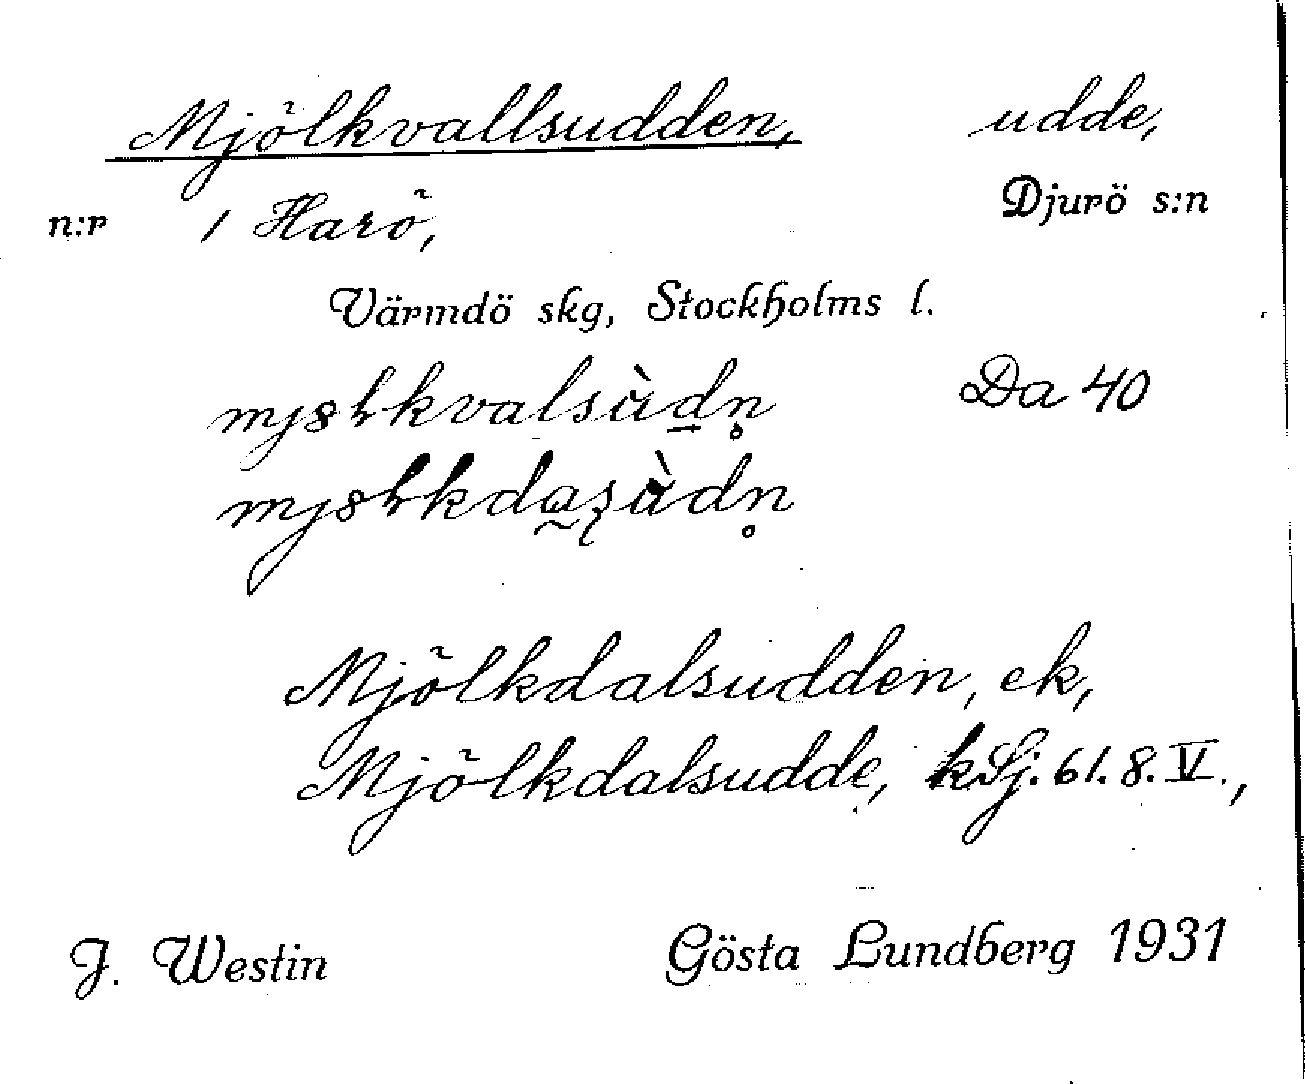 Mjölkvallsudden, udde,
n:r 1 Harö, Djurö s:n
Värmdö skg, Stockholms l.
Da 40
Mjölkdalsudden, ek,
Mjölkdalsudde, kSj. 61. 8. V.,
J. Westin Gösta Lundberg 1931